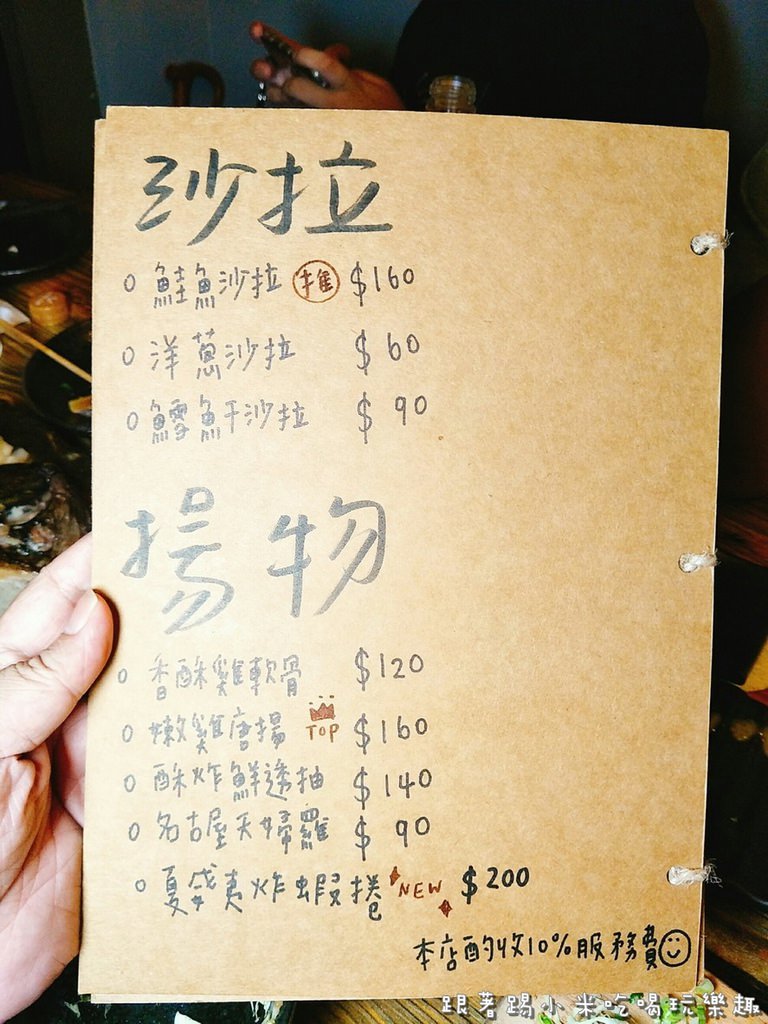 沙拉
鮭魚沙拉 推 $160
洋蔥沙拉 $60
鱈魚干沙拉 $90
揚物
香酥雞軟骨 $120
嫩雞唐揚 TOP $160
酥炸鮮透抽 $140
名古屋天婦羅 $90
夏威夷炸蝦捲 NEW $200
本店酌收10%服務費
跟著踢小米吃喝玩樂趣